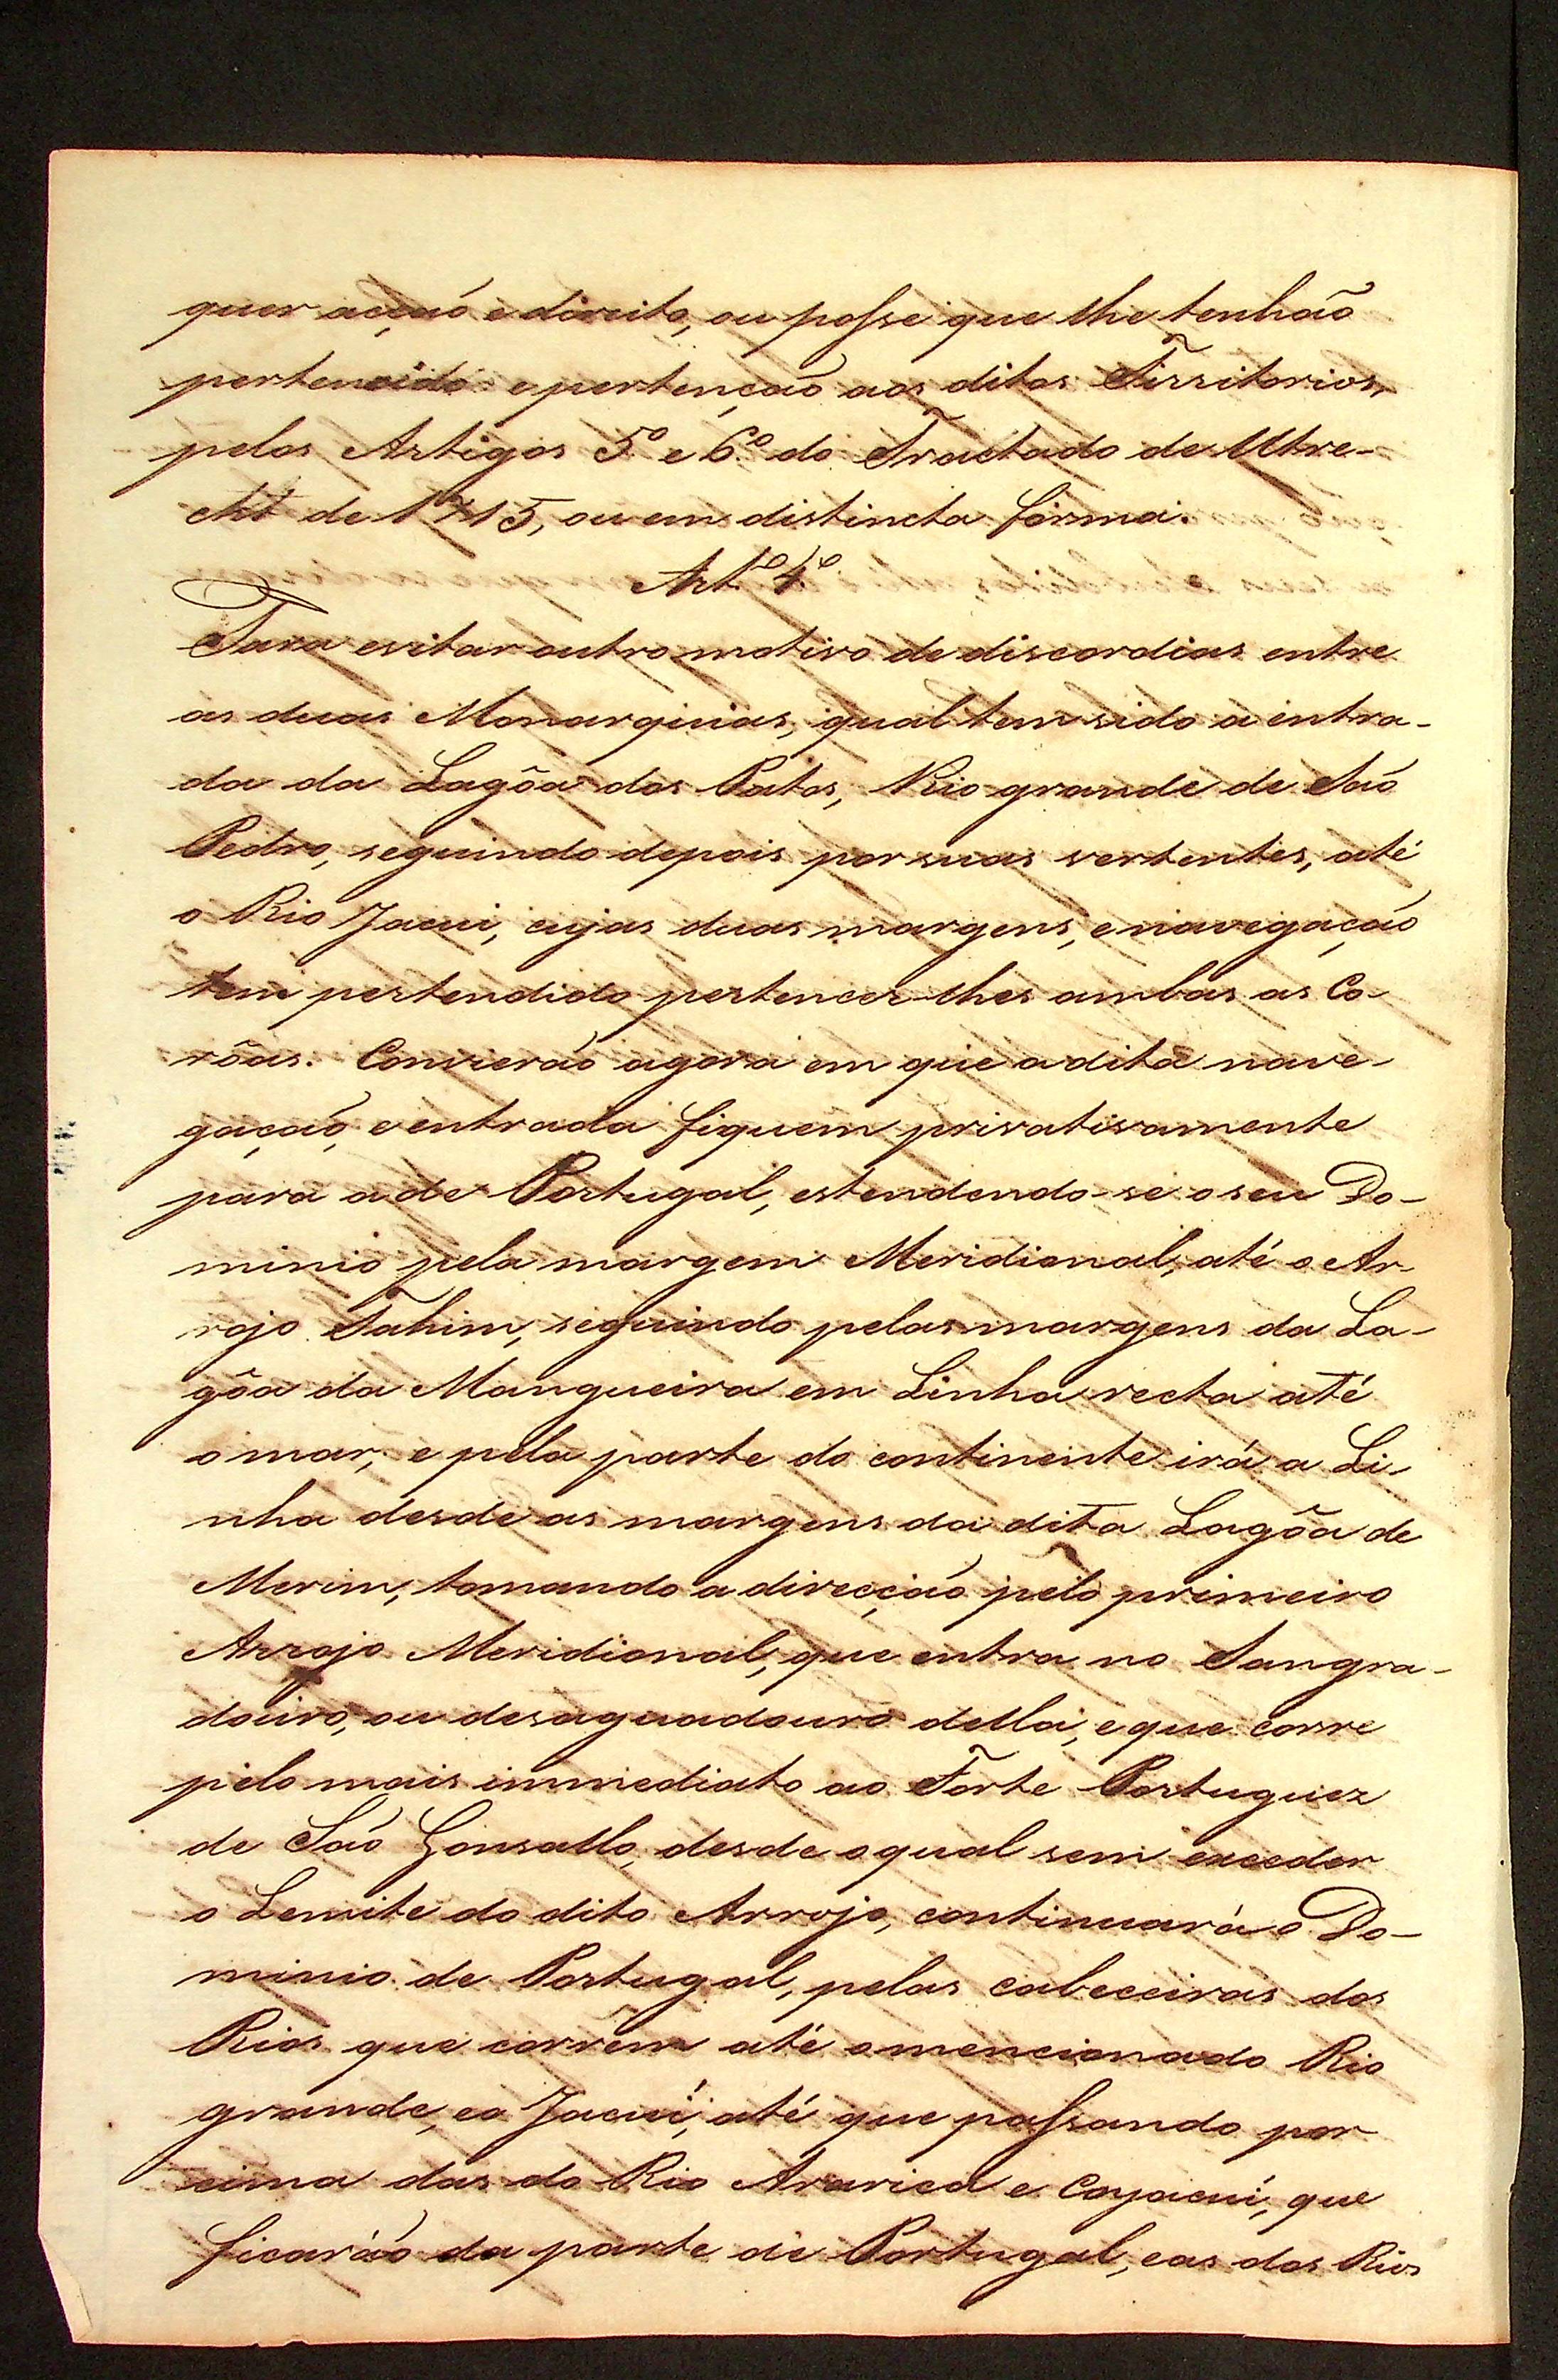 quer acçaõ e direito, ou posse que lhe tenhaõ
pertencido e pertençaõ aos ditos Territorios,
pelos Artigos 5º e 6º do Tractado de Utre-
cht de 1715, ou em distincta fórma.
Art.º 4º
Para evitar outro motivo de discordias entre
as duas Monarquias, qual tem sido a entra-
da da Lagôa dos Patos, Rio grande de Saõ
Pedro, seguindo depois por suas vertentes, até
o Rio Jacui, cujas duas margens, e navegaçaõ
tem pertendido pertencer-lhes ambas as Co-
rôas. Convieraõ agora em que a dita nave-
gaçaõ, e entrada fiquem privativamente
para a de Portugal, estendendo-se o seu Do-
minio pela margem Meridional, até o Ar-
rojo Tahim, seguindo pelas margens da La-
gôa da Mangueira em Linha recta até
o mar; e pela parte do continente irá a Li-
nha desde as margens da dita Lagôa de
Merim, tomando a direcçaõ pelo primeiro
Arrojo Meridional, que entra no Sangra-
douro, ou desaguadouro della, e que corre
pelo mais immediato ao Forte Portuguez
de Saõ Gonsallo, desde o qual sem exceder
o Lemite do dito Arrojo, continuará o Do-
minio de Portugal, pelas cabeceiras dos
Rios que correm até o mencionado Rio
grande, e o Jacuí, até que passando por
cima das do Rio Ararica e Coyacuí, que
ficaráõ da parte de Portugal, e as dos Rios